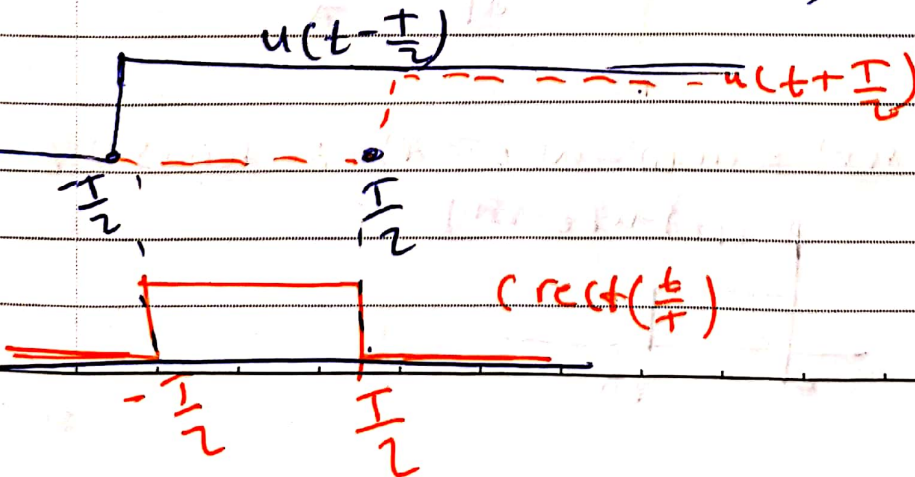 u(t-T/2)
u(t+T/2)
-T/2
T/2
C rect(t/T)
-T/2
T/2